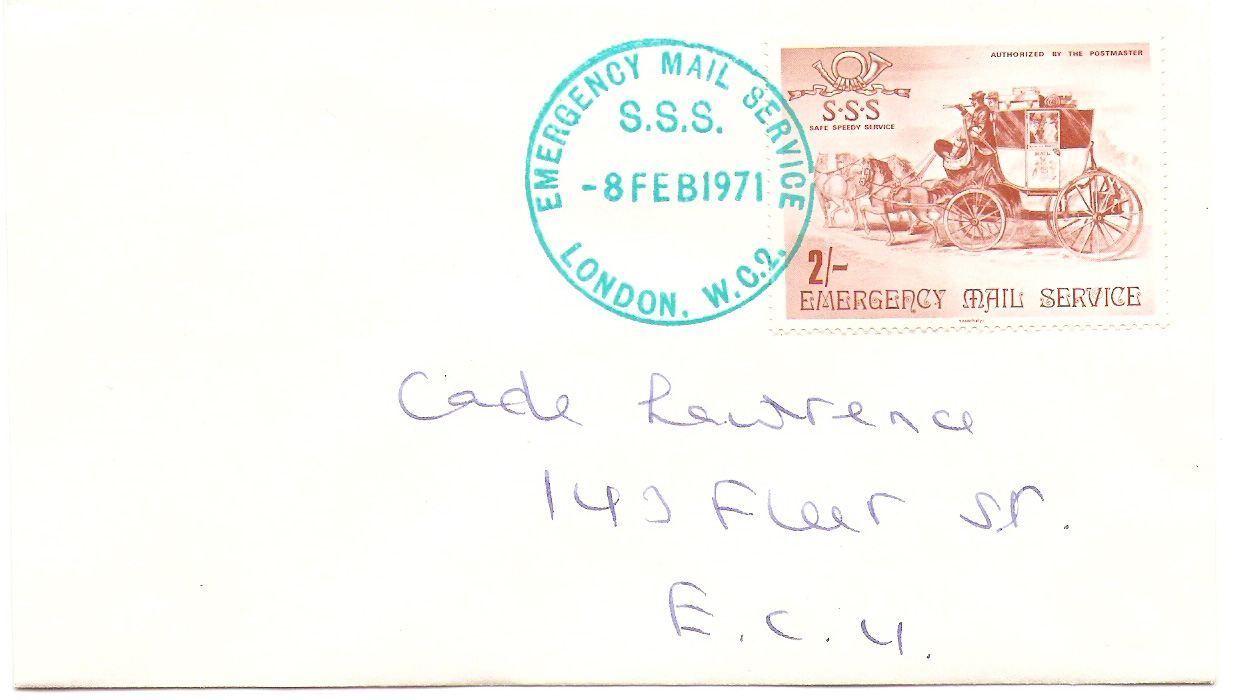 EMERGENCY MAIL SERVICE
S.S.S.
-8 FEB 1971
LONDON. W.C.2.
AUTHORIZED BY THE POSTMASTER
S·S·S
SAFE SPEEDY SERVICE
2/-
EMERGENCY MAIL SERVICE
Cade Lawrence
143 Fleet St.
E.C.4.